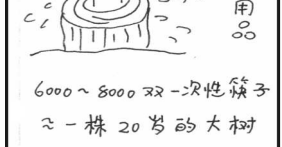 用
品
6000~8000双一次性筷子
≈一株20岁的大树